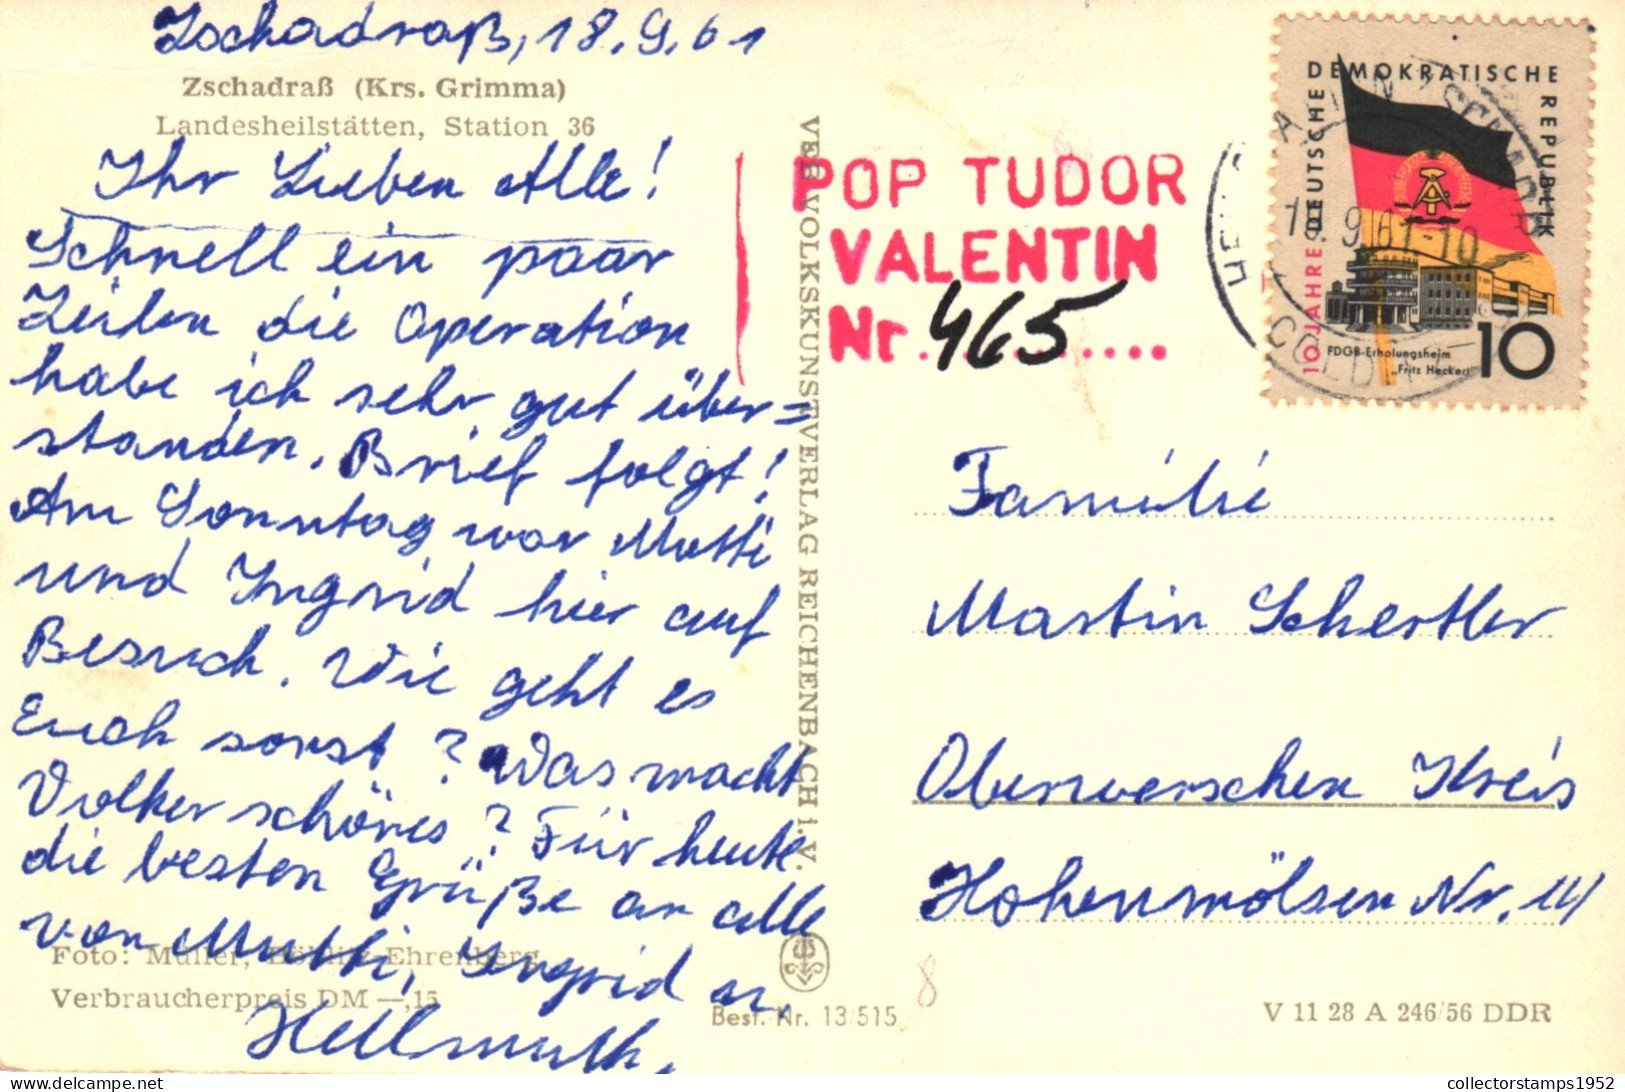 Zschadraß, 18.9.61
Zschadraß (Krs. Grimma)
Landesheilstätten, Station 36
Ihr Lieben Alle!
Schnell ein paar
Zeilen die Operation
habe ich sehr gut über=
standen. Brief folgt!
Am Sonntag war Mutti
und Ingrid hier auf
Besuch. Wie geht es
Euch sonst? Was macht
Volker schönes? Für heute
die besten Grüße an alle
von Mutti, Ingrid u.
Hellmuth.
Foto: Müller, Böhlitz-Ehrenberg
Verbraucherpreis DM —,15
VEB VOLKSKUNSTVERLAG REICHENBACH i. V.
Best.-Nr. 13/515
POP TUDOR
VALENTIN
Nr. 465
DEUTSCHE DEMOKRATISCHE REPUBLIK
10 JAHRE
FDGB-Erholungsheim
„Fritz Heckert"
10
9.61-10
COLDITZ
Familie
Martin Schertler
Oberwerschen Kreis
Hohenmölsen Nr. 14
8
V 11 28 A 246/56 DDR
collectorstamps1952